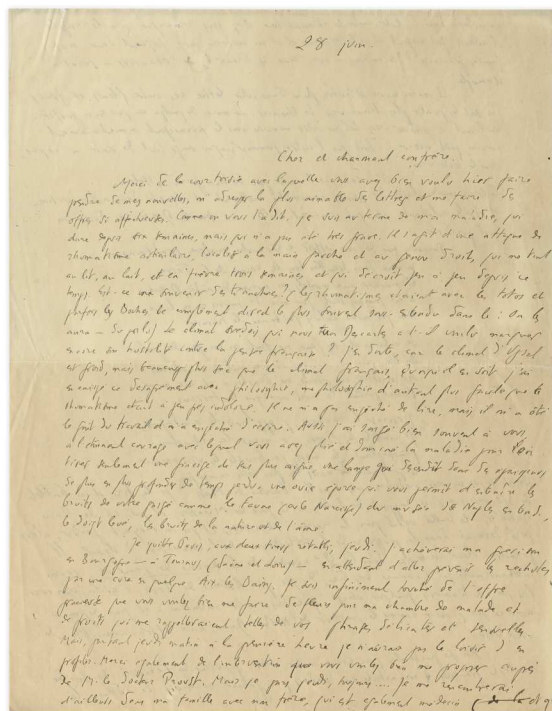 28 juin.
Cher et charmant confrère
Merci de la courtoisie avec laquelle vous avez bien voulu hier faire
prendre de mes nouvelles, m'adresser la plus aimable des lettres et me faire des
offres si affectueuses. Comme on vous l'a dit, je suis au terme de ma maladie, qui
dure depuis six semaines, mais qui n'a pas été très grave. Il s'agit d'une attaque de
rhumatisme articulaire, localisé à la main gauche et au genou droit, qui me tint
au lit, au lait, et en fièvre trois semaines et qui décroît peu à peu depuis ce
temps. Est-ce un souvenir des tranchées? (les rhumatismes étaient avec les totos et
parfois les Boches le complément direct le plus souvent sous-entendu dans le : On les
aura – du poilu) Le climat suédois qui nous tua Descartes a-t-il voulu marquer
encore son hostilité contre la pensée française ? J'en doute, car le climat d'Upsal
est froid, mais beaucoup plus sec que le climat français. Quoiqu'il en soit j'ai
encaissé ce désagrément avec philosophie, ma philosophie d'autant plus facile que le
rhumatisme était à peu près indolore. Il ne m'a pas empêché de lire, mais il m'a ôté
le goût du travail et m'a empêché d'écrire. Aussi j'ai songé bien souvent à vous,
à l'étonnant courage avec lequel vous avez plié et dominé la maladie pour
tirer seulement une pensée de plus plus aiguë, une
de plus en plus profondes du temps perdu, une ouïe épurée qui vous permit d'entendre les
bruits de votre passé comme le faune (ou le Narcisse) du musée de Naples entend,
le doigt levé, les bruits de la nature et de l'âme.
Je quitte Paris, aux deux tiers rétabli, jeudi. J'achèverai ma guérison
en Bourgogne – à Tournus (Saône et Loire) – en attendant d'aller prévenir les rechutes
par une cure en quelque Aix-les-Bains. Je suis infiniment touché de l'offre
que vous voulez bien me faire de fleurs pour ma chambre de malade et
de fruits qui me rappelleraient celles de vos phrases délicates et sensuelles.
Mais, partant jeudi matin à la première heure je n'aurai pas le loisir d'en
profiter. Merci également de l'intervention que vous voulez bien me proposer auprès
de M. le docteur Proust. Mais je pars jeudi, toujours... Je me rencontrerai
d'ailleurs dans ma famille avec mon frère, qui est également médecin